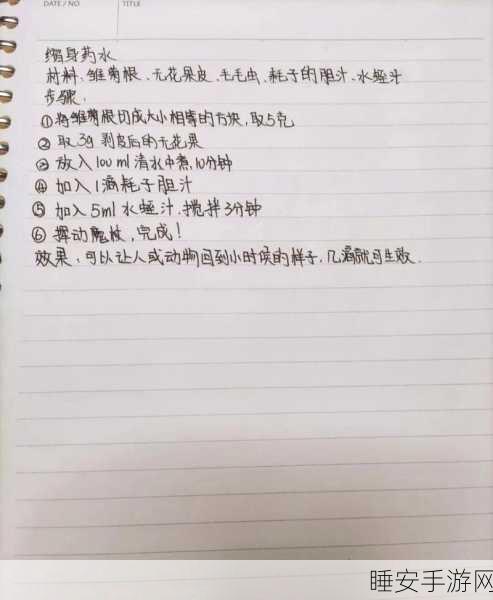 DATE / NO
TITLE
缩身药水
材料:雏菊根、无花果皮、毛毛虫、耗子的胆汁、水蛭汁
步骤:
①将雏菊根切成大小相等的方块,取5克
②取3g剥皮后的无花果
③放入100ml清水中煮,10分钟
④加入1滴耗子胆汁
⑤加入5ml水蛭汁.搅拌3分钟
⑥挥动魔杖,完成!
效果:可以让人或动物回到小时候的样子,几滴就可生效.
睡安手游网